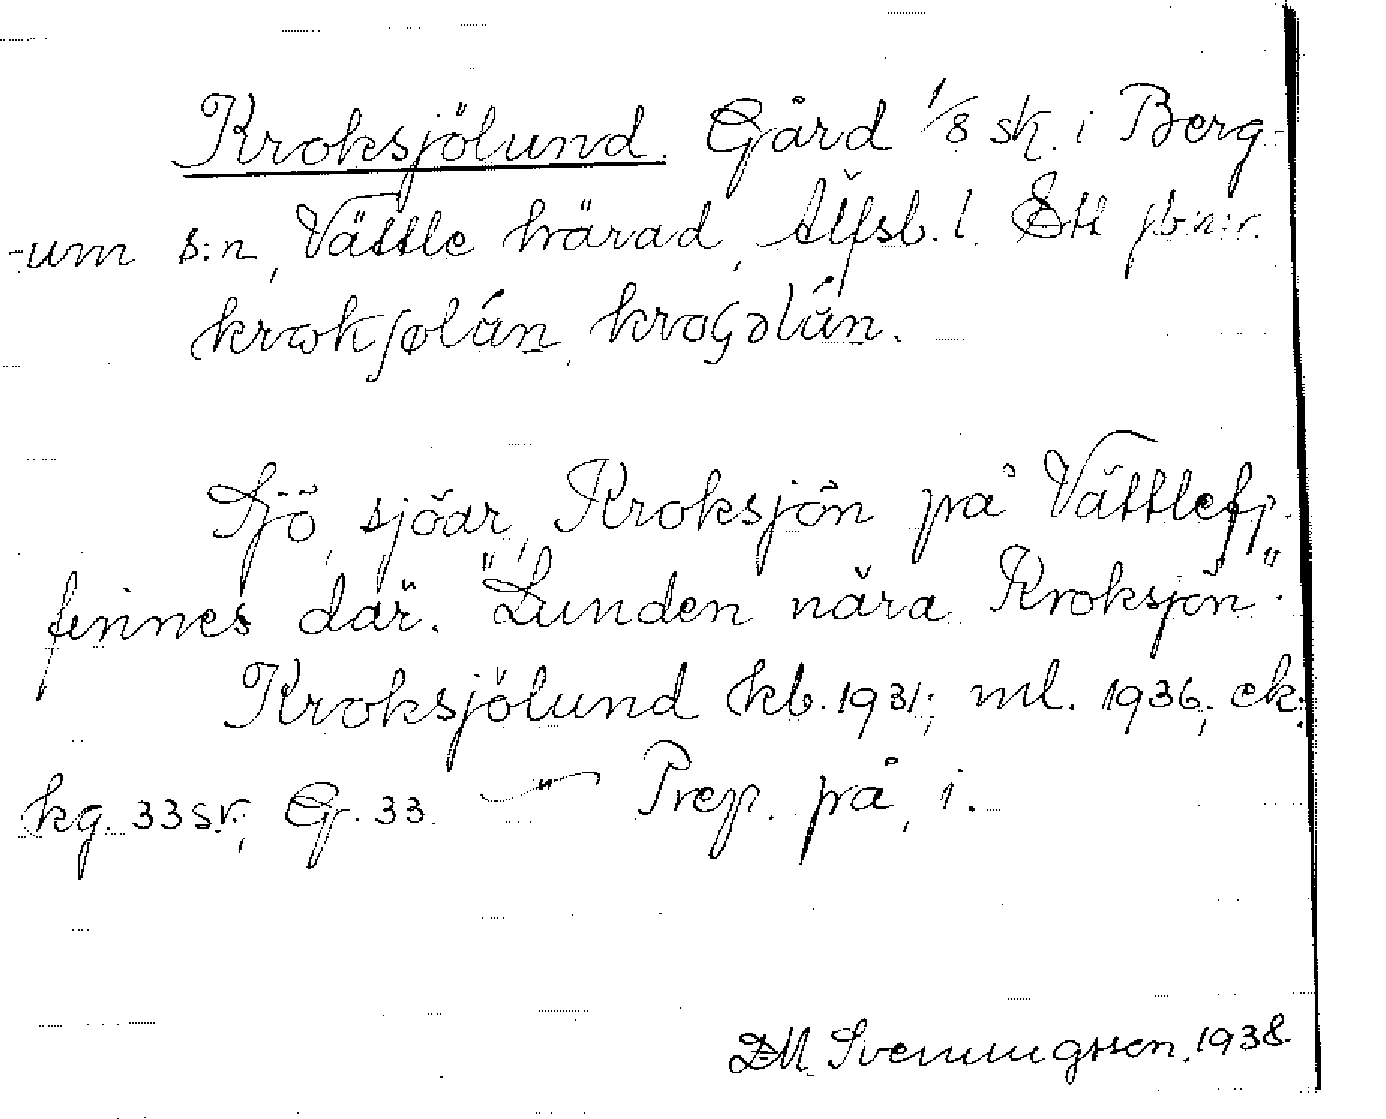 Kroksjölund. Gård 1/8 sk. i Berg-
-um s:n, Vättle härad, Älfsb. l. Ett jb:n:r.
Sjö, sjöar, Kroksjön på Vättlefj.
finnes där. "Lunden nära Kroksjön".
Kroksjölund kb. 1931; ml. 1936; ek.
kg. 33 sr; G. 33 — " — Prep. på, i.
D.M. Svenningsson. 1938.